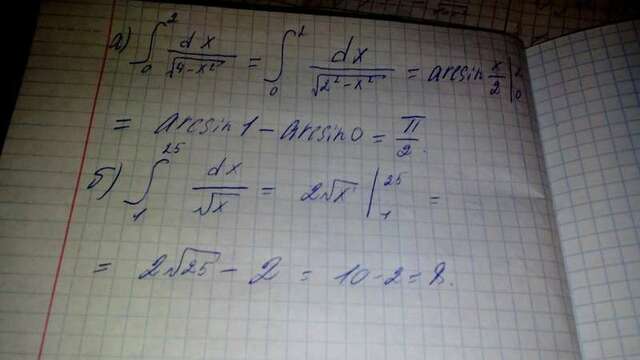 а) ∫₀² dx/√(4-x²) = ∫₀² dx/√(2²-x²) = arcsin x/2 |₀²
= arcsin1 - arcsin0 = π/2.
б) ∫₁²⁵ dx/√x = 2√x |₁²⁵ =
= 2√25 - 2 = 10-2=8.